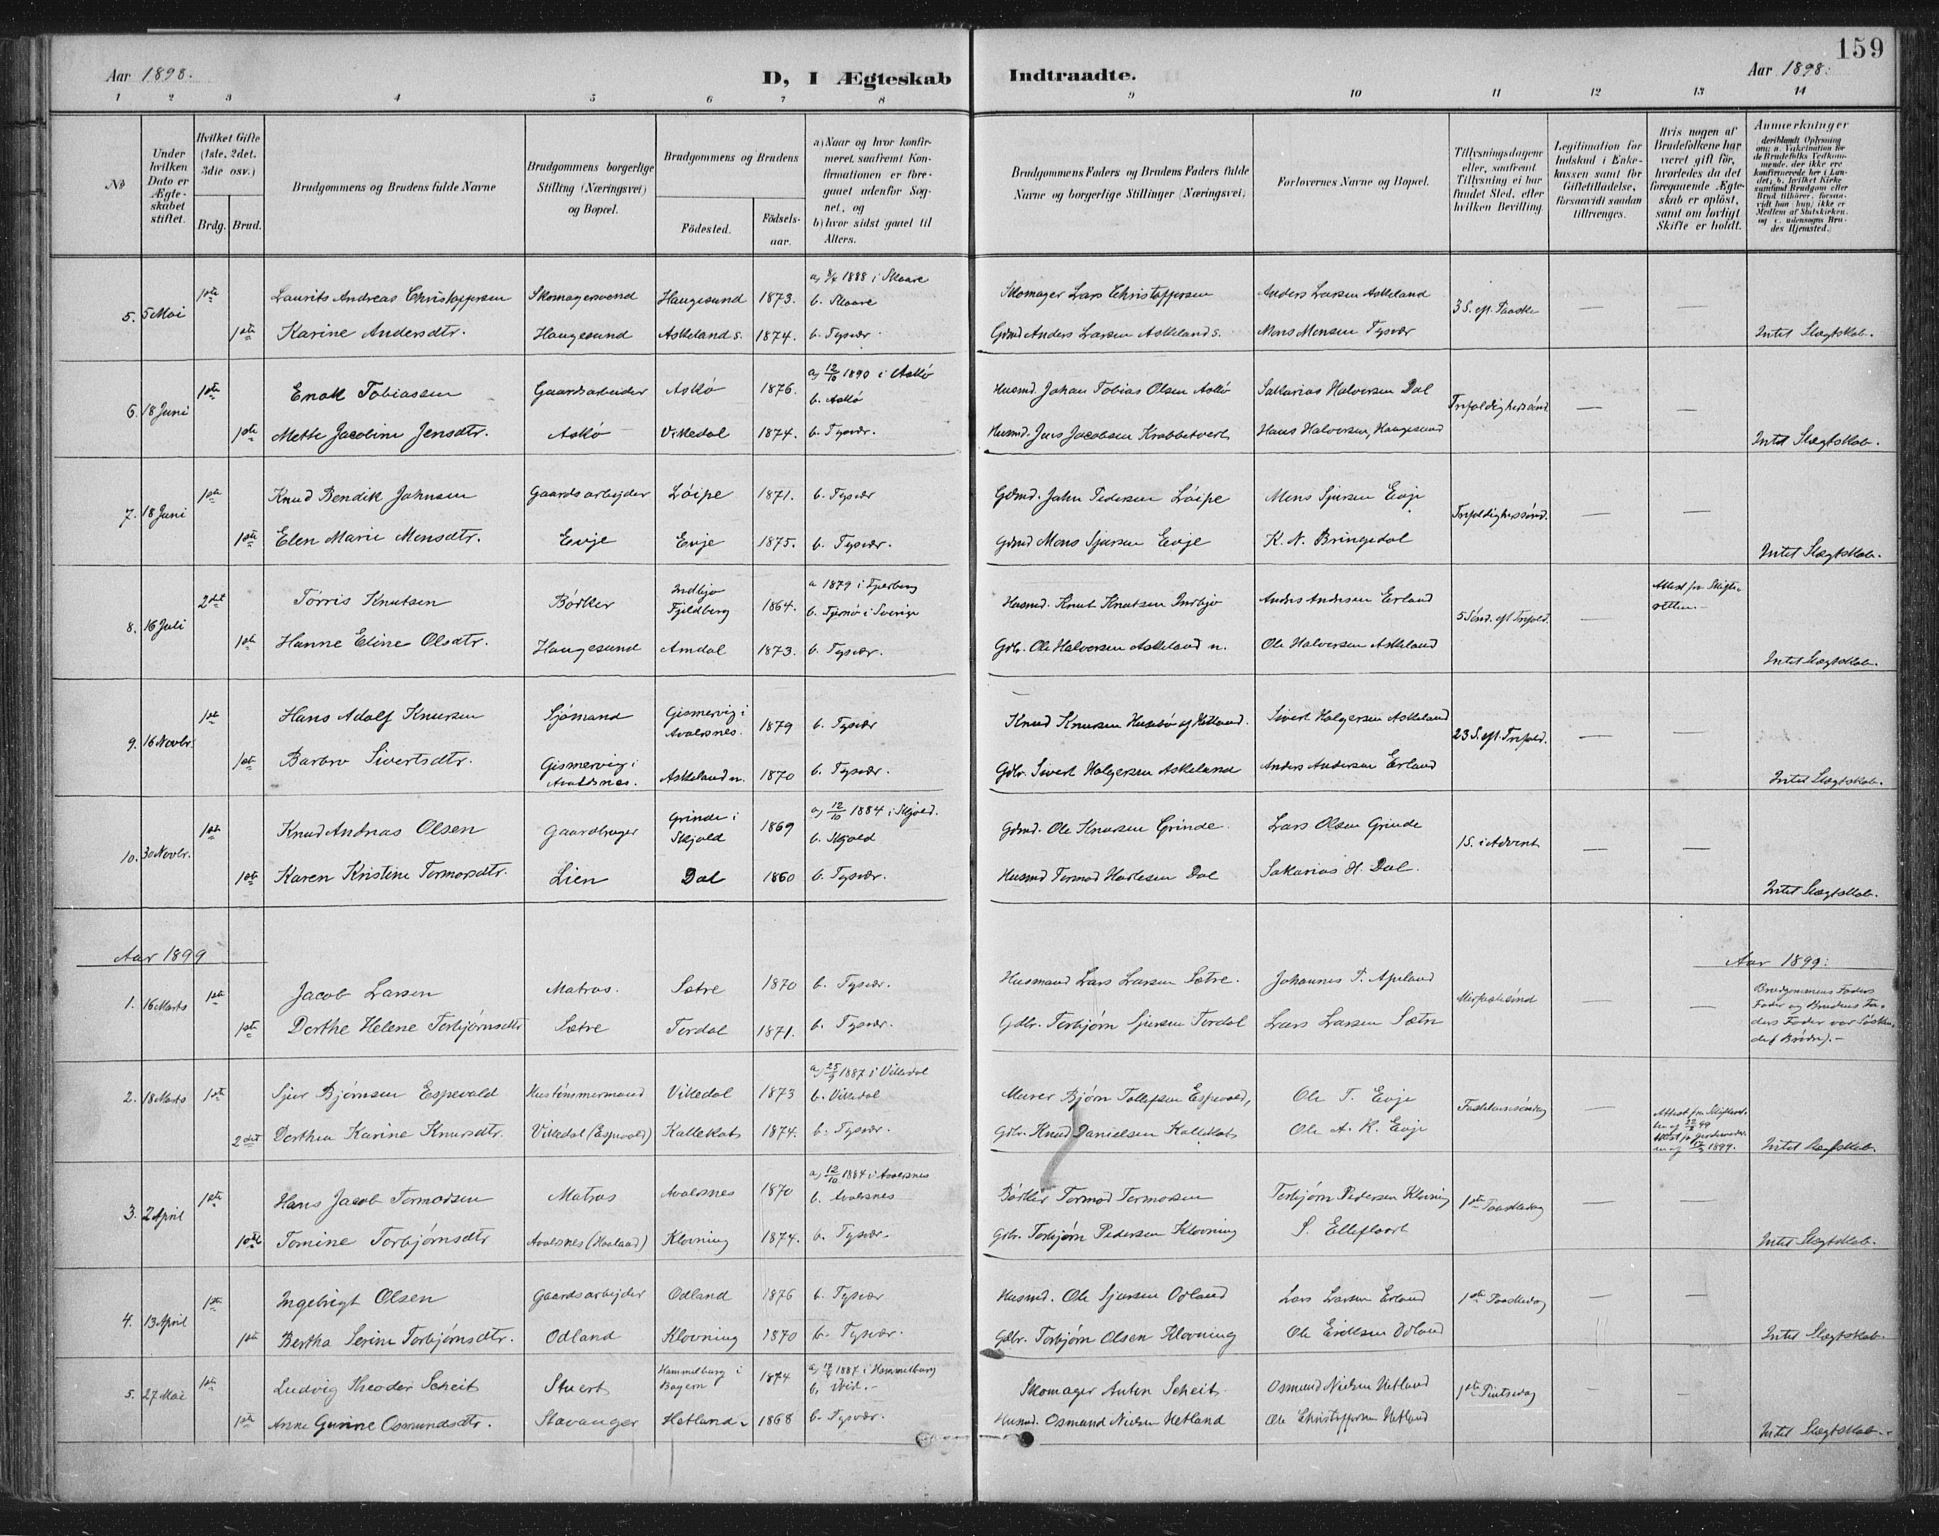 159
Aar 1898.
D, I Ægteskab Indtraadte.
Aar 1898.
1 2 3 4 5 6 7 8 9 10 11 12 13 14
№
Under hvilken Dato er Ægteskabet stiftet.
Hvilket Gifte (1ste, 2det, 3die osv.)
Brdg. Brud.
Brudgommens og Brudens fulde Navne
Brudgommens borgerlige Stilling (Næringsvei) og Bopæl.
Brudgommens og Brudens
Fødested.
Fødselsaar.
a) Naar og hvor konfirmeret, saafremt Konfirmationen er foregaaet udenfor Sognet, og
b) hvor sidst gaaet til Alters.
Brudgommens Faders og Brudens Faders fulde Navne og borgerlige Stillinger (Næringsvei)
Forlovernes Navne og Bopæl.
Tillysningsdagene eller, saafremt Tillysning ei har fundet Sted, efter hvilken Bevilling.
Legitimation for Indskud i Enkekassen samt for Giftetilladelse, forsaavidt saadan tiltrænges.
Hvis nogen af Brudefolkene har været gift før, hvorledes da det foregaaende Ægteskab er opløst, samt om lovligt Skifte er holdt.
Anmerkninger
5. 5 Mai 1ste Laurits Andreas Christoffersen Skomagersvend Haugesund 1873. a) 8/4 1888 i Skaare b. Skaare Skomager Lars Christoffersen Anders Larsen Askeland 3 S. eft. Paaske — —
1ste Karine Andersdtr. Haugesund Askeland s. 1874. b. Tysvær Gdmd Anders Larsen Askeland s. Mons Monsen Tysvær Intet Slægtskab.
6. 18 Juni 1ste Enok Tobiassen Gaardsarbeider Askø 1876. a) 12/10 1890 i Askø b. Askø Husmd. Johan Tobias Olsen Askø Sakkarias Halversen Dal Trefoldighedssønd. — —
1ste Mette Jacobine Jensdtr. Askø Vikedal 1874. b. Tysvær. Husmd. Jens Jacobsen Krabbetveit Hans Halversen, Haugesund Intet Slægtskab.
7. 18 Juni 1ste Knud Bendik Johnsen Gaardsarbejder Løipe 1871. b. Tysvær Gdmd. John Pedersen Løipe Mons Sjursen Evje Trefoldighedssønd. — —
1ste Elen Marie Monsdtr. Evje Evje 1875. b. Tysvær. Gdmd Mons Sjursen Evje K. N. Bringedal Intet Slægtskab.
8. 16 Juli 2det Tørris Knutsen Bødker Indbjo Fjeldberg 1864. a 1879 i Fjelberg b. Tjernø i Sverige Husmd. Knut Knutsen Indbjo Anders Andersen Erland 5 Sønd. eft Trefold. — Attest fra Skifteretten
1ste Hanne Eline Olsdtr. Haugesund Amdal 1873. b. Tysvær. Gdbr. Ole Halversen Askeland n. Ole Halversen Askeland Intet Slægtskab.
9. 16 Novbr. 1ste Hans Adolf Knudsen Sjømand Gismervig i Avaldsnes. 1879 b. Tysvær Knud Knudsen Husebø af Hetland. Sivert Holgersen Askeland 23 S. eft. Trefold. — —
1ste Barbro Sivertsdtr. Gismervig i Avaldsnes. Askeland n. 1870 b. Tysvær. Gdbr. Sivert Holgersen Askeland Anders Andersen Erland Intet Slægtskab.
10. 30 Novbr. 1ste Knud Andreas Olsen Gaardbruger Grinde i Skjold 1869 a) 12/10 1884 i Skjold. b. Skjold Gdmd. Ole Knudsen Grinde. Lars Olsen Grinde 1 S. i Advent — —
1ste Karen Kristine Tormodsdtr. Lien Dal 1860 b. Tysvær. Husmd Tormod Dal Sakarias H. Dal. Intet Slægtskab.
Aar 1899
Aar 1899:
1. 16 Marts 1ste Jacob Larsen Matros. Sætre 1870 b. Tysvær. Husmand Lars Larsen Sætre. Johannes T. Apeland Midfastesønd — — Brudgommens Faders Fader og Brudens Faders Fader var Søskende (Brødre). –
1ste Dorthe Helene Torbjørnsdtr Sætre Tordal 1871. b. Tysvær. Gdbr. Torbjørn Sjursen Tordal Lars Larsen Sætre
2. 18 Marts 1ste Sjur Bjørnsen Espevold Hustømmermand Vikedal 1873 a) 25/9 1887 i Vikedal b. Vikedal Murer Bjørn Tollefsen Espevold, Ole T. Evje Fastelavnssøndag —
2det Dorthea Karine Knudsdtr. Vikedal (Espevold) Kallekot 1874. b. Tysvær. Gdbr. Knud Danielsen Kallekot Ole A. K. Evje Intet Slægtskab.
3. 2 April 1ste Hans Jacob Tormodsen Matros Avaldsnes 1870 a) 12/10 1884 i Avaldsnes b. Avaldsnes Bødker Tormod Tormodsen Torbjørn Pedersen Klovning 1ste Paaskedag — —
1ste Tomine Torbjørnsdtr Avaldsnes (Haaland) Klovning 1874. b. Tysvær. Gdbr. Torbjørn Pedersen Klovning S. Elleflaadt Intet Slægtskab.
4. 13 April 1ste Ingebrigt Olsen Gaardsarbejder Odland 1876 b. Tysvær Husmd. Ole Sjursen Odland Lars Larsen Erland 1ste Paaskedag — —
1ste Bertha Serine Torbjørnsdtr. Odland Klovning 1870 b. Tysvær. Gdbr. Torbjørn Olsen Klovning Ole Eriksen Odland Intet Slægtskab.
5. 27 Mai 1ste Ludvig Theodor Scheit Stuert Hammelburg i Bayern 1874 1887 i Hammelburg b. ibid. – Skomager Anton Scheit Osmund Nielsen Hetland 1ste Pintsedag — —
1ste Anne Gurine Osmundsdtr. Stavanger Hetland 1868 b. Tysvær. Husmd. Osmund Nielsen Hetland Ole Christoffersen Hetland Intet Slægtskab.